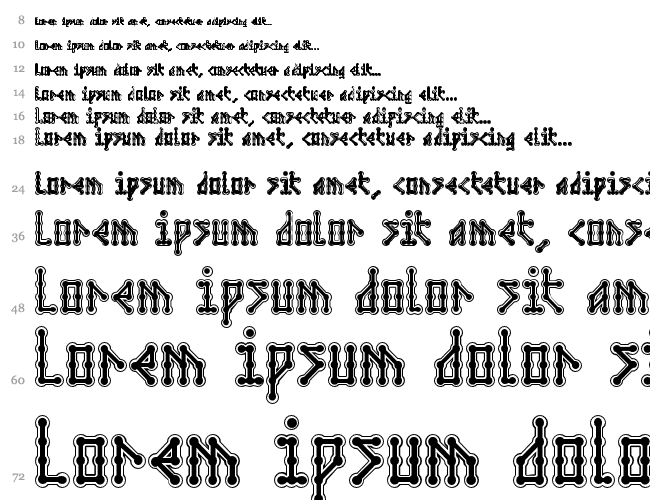 8 Lorem ipsum dolor sit amet, consectetuer adipiscing elit...
10 Lorem ipsum dolor sit amet, consectetuer adipiscing elit...
12 Lorem ipsum dolor sit amet, consectetuer adipiscing elit...
14 Lorem ipsum dolor sit amet, consectetuer adipiscing elit...
16 Lorem ipsum dolor sit amet, consectetuer adipiscing elit...
18 Lorem ipsum dolor sit amet, consectetuer adipiscing elit...
24 Lorem ipsum dolor sit amet, consectetuer adipisci
36 Lorem ipsum dolor sit amet, conse
48 Lorem ipsum dolor sit am
60 Lorem ipsum dolor si
72 Lorem ipsum dolo